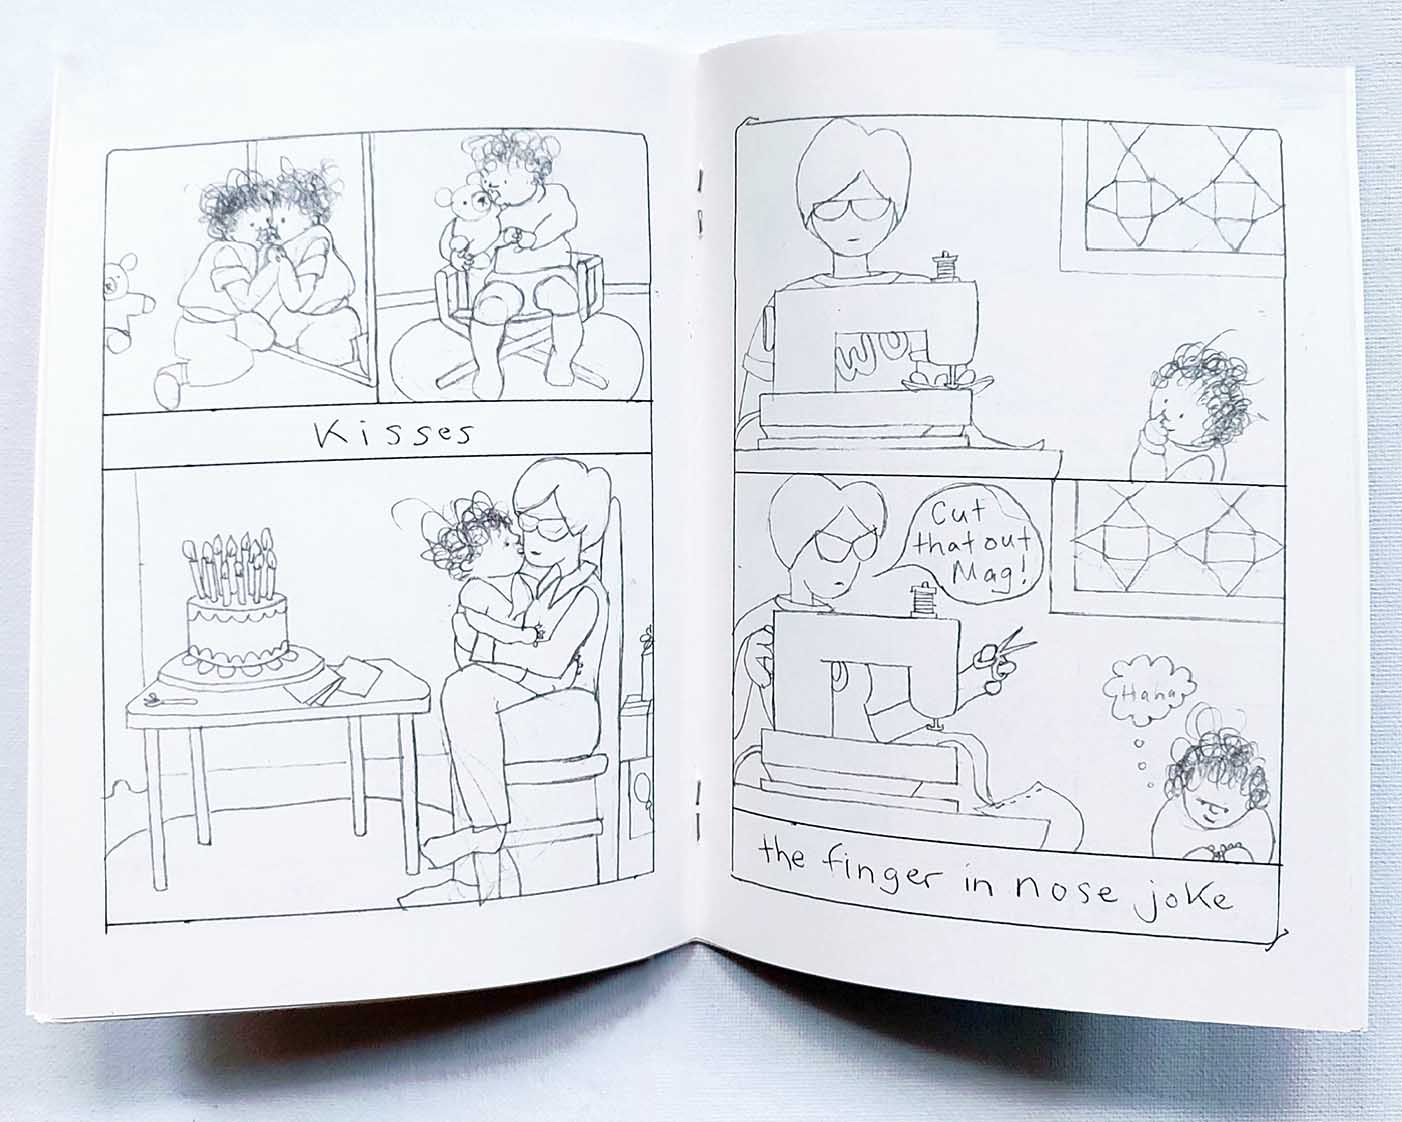 Kisses
WU
Cut
that out
Mag!
Haha
the finger in nose joke